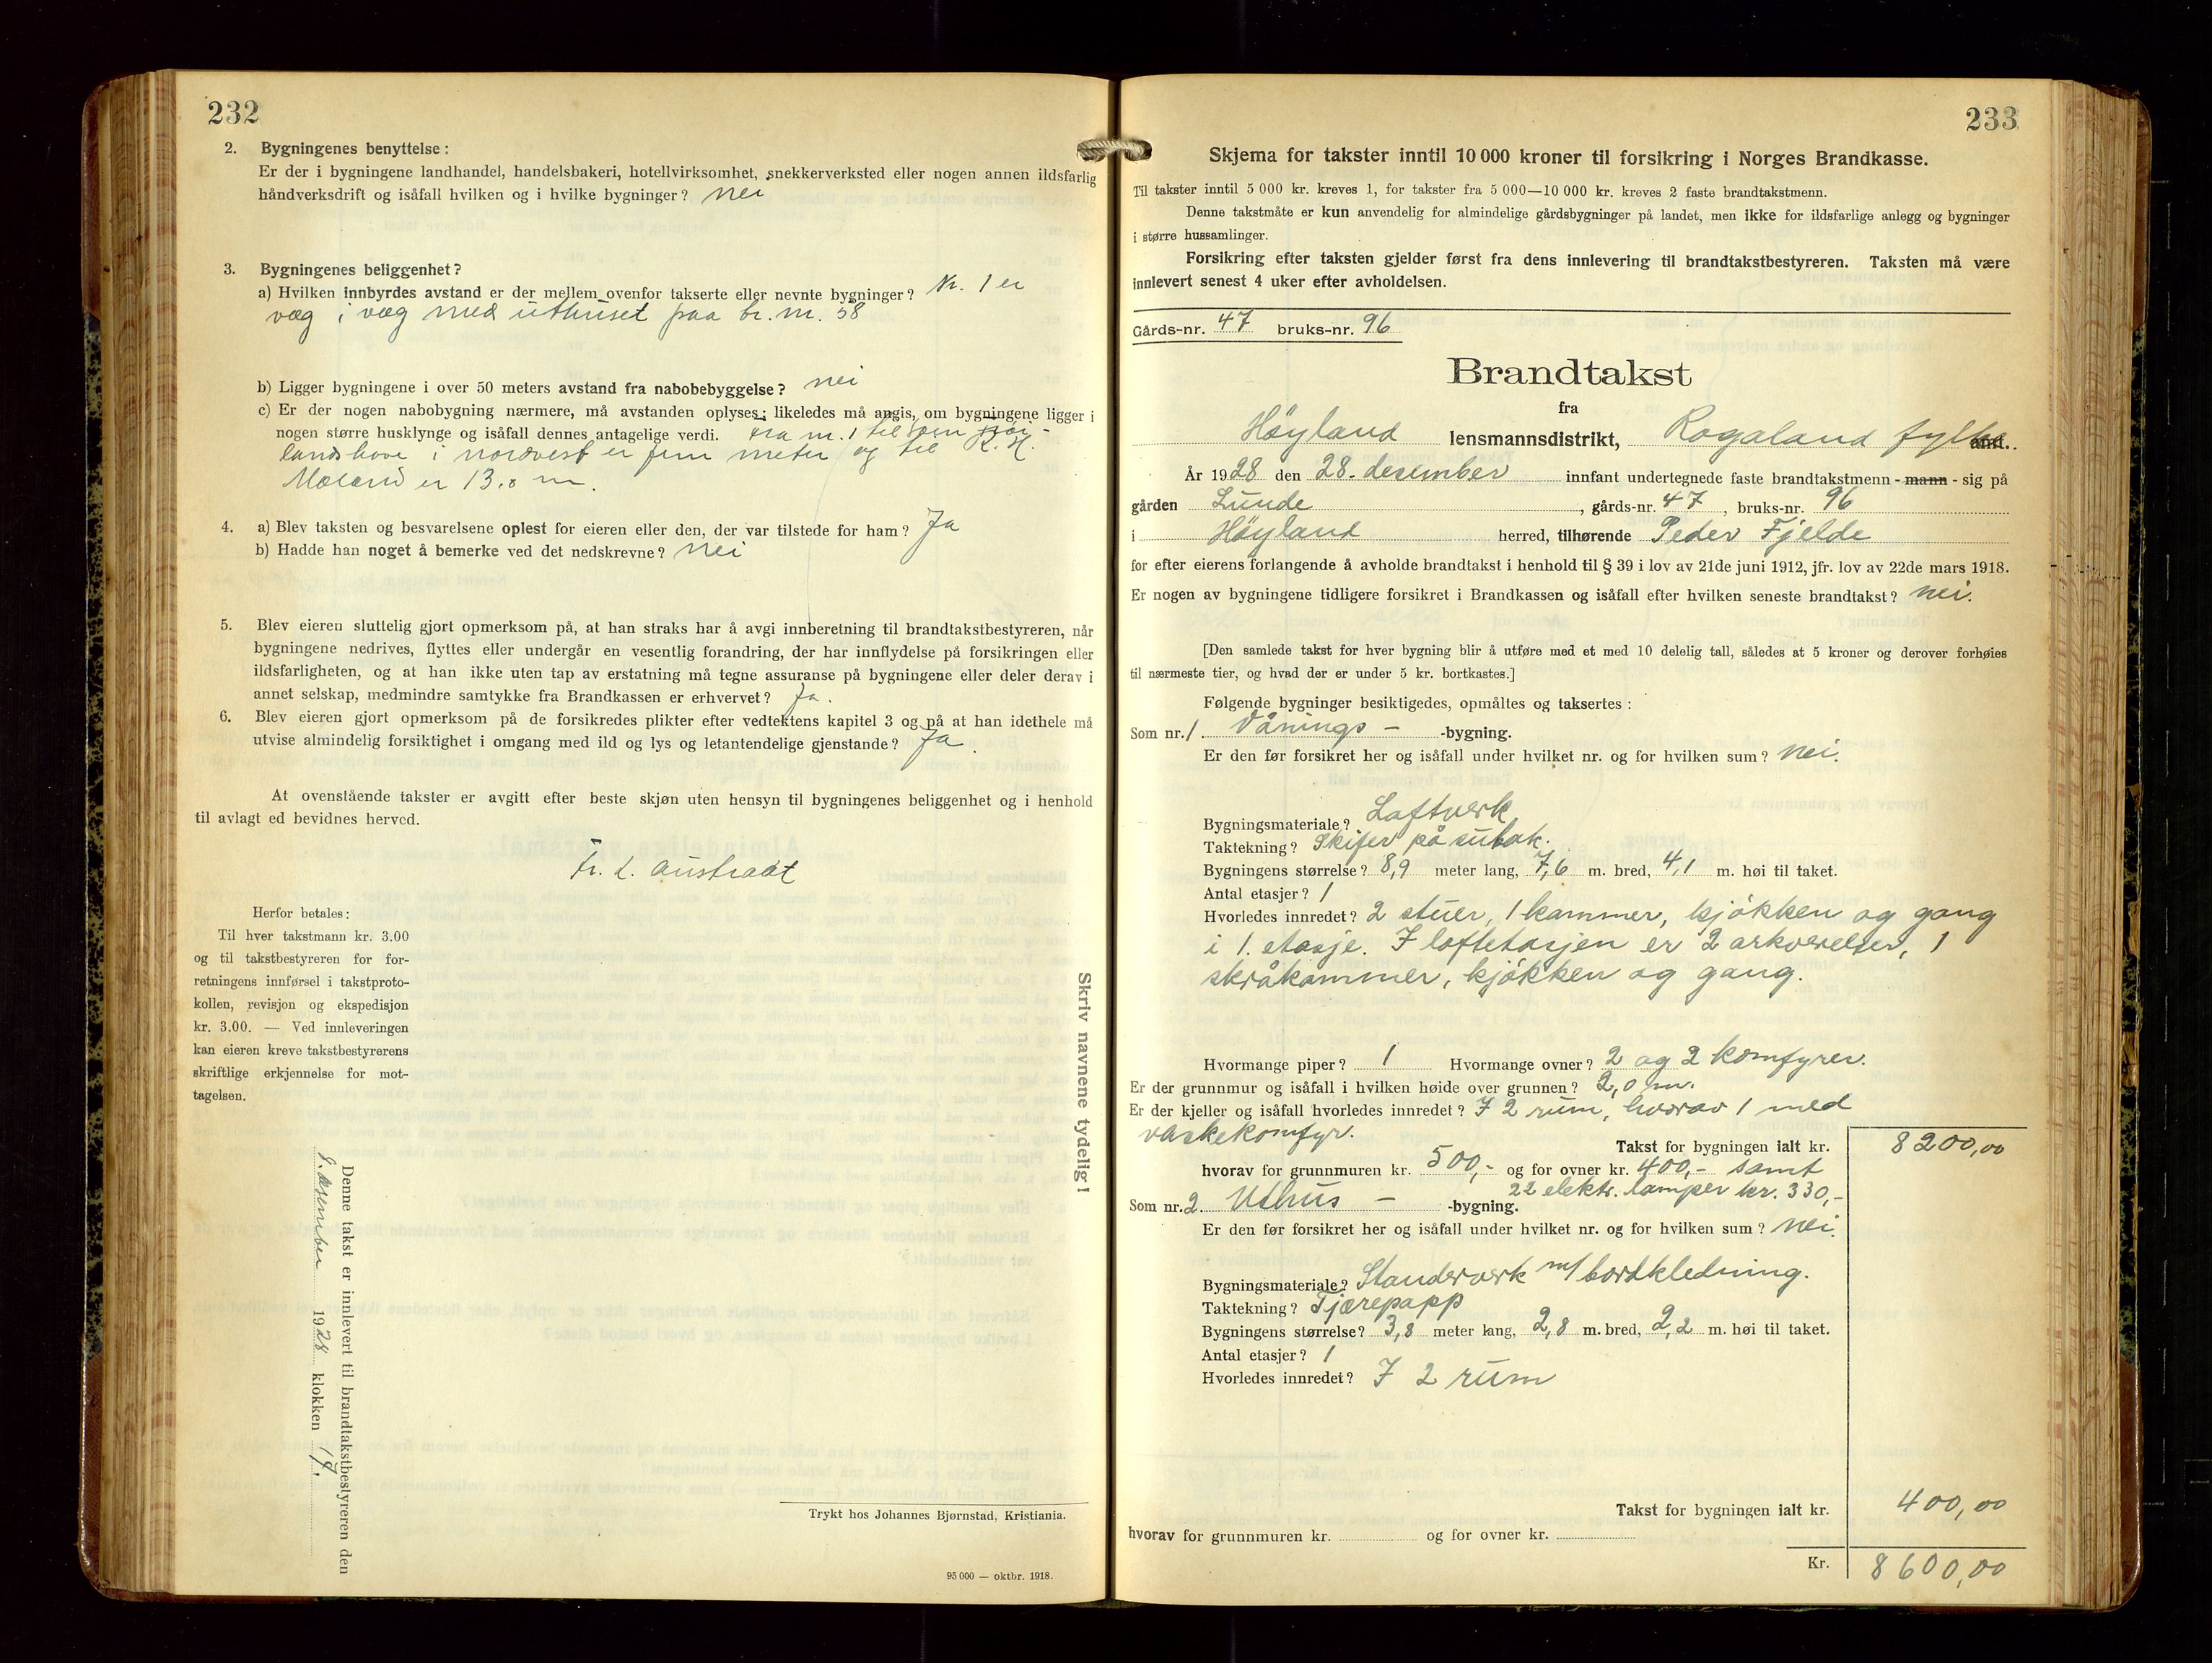 232
2. Bygningenes benyttelse:
Er der i bygningene landhandel, handelsbakeri, hotellvirksomhet, snekkerverksted eller nogen annen ildsfarlig
håndverksdrift og isåfall hvilken og i hvilke bygninger? nei
3. Bygningenes beliggenhet?
a) Hvilken innbyrdes avstand er der mellem ovenfor takserte eller nevnte bygninger? Nr. 1 er
væg i væg med uthuset paa br. nr. 58
b) Ligger bygningene i over 50 meters avstand fra nabobebyggelse? nei
c) Er der nogen nabobygning nærmere, må avstanden oplyses; likeledes må angis, om bygningene ligger i
nogen større husklynge og isåfall dennes antagelige verdi. Fra nr. 1 til
i nordvest er fem meter og til K. H.
er 13.0 m.
4. a) Blev taksten og besvarelsene oplest for eieren eller den, der var tilstede for ham? Ja
b) Hadde han noget å bemerke ved det nedskrevne? nei
5. Blev eieren sluttelig gjort opmerksom på, at han straks har å avgi innberetning til brandtakstbestyreren, når
bygningene nedrives, flyttes eller undergår en vesentlig forandring, der har innflydelse på forsikringen eller
ildsfarligheten, og at han ikke uten tap av erstatning må tegne assuranse på bygningene eller deler derav i
annet selskap, medmindre samtykke fra Brandkassen er erhvervet? Ja.
6. Blev eieren gjort opmerksom på de forsikredes plikter efter vedtektens kapitel 3 og på at han idethele må
utvise almindelig forsiktighet i omgang med ild og lys og letantendelige gjenstande? Ja.
At ovenstående takster er avgitt efter beste skjøn uten hensyn til bygningenes beliggenhet og i henhold
til avlagt ed bevidnes herved.
Fr. L. Austraat
Herfor betales:
Til hver takstmann kr. 3.00
og til takstbestyreren for for-
retningens innførsel i takstproto-
kollen, revisjon og ekspedisjon
kr. 3.00. — Ved innleveringen
kan eieren kreve takstbestyrerens
skriftlige erkjennelse for mot-
tagelsen.
Skriv navnene tydelig!
Denne takst er innlevert til brandtakstbestyreren den
desember 1928 klokken 17.
Trykt hos Johannes Bjørnstad, Kristiania.
95 000 — oktbr. 1918.
233
Skjema for takster inntil 10 000 kroner til forsikring i Norges Brandkasse.
Til takster inntil 5 000 kr. kreves 1, for takster fra 5 000—10 000 kr. kreves 2 faste brandtakstmenn.
Denne takstmåte er kun anvendelig for almindelige gårdsbygninger på landet, men ikke for ildsfarlige anlegg og bygninger
i større hussamlinger.
Forsikring efter taksten gjelder først fra dens innlevering til brandtakstbestyreren. Taksten må være
innlevert senest 4 uker efter avholdelsen.
Gårds-nr. 47 bruks-nr. 96
Brandtakst
fra
Høyland lensmannsdistrikt, Rogaland fylke amt.
År 1928 den 28. desember innfant undertegnede faste brandtakstmenn - mann - sig på
gården Lunde, gårds-nr. 47, bruks-nr. 96
i Høyland herred, tilhørende Peder Fjelde
for efter eierens forlangende å avholde brandtakst i henhold til § 39 i lov av 21de juni 1912, jfr. lov av 22de mars 1918.
Er nogen av bygningene tidligere forsikret i Brandkassen og isåfall efter hvilken seneste brandtakst? nei.
[Den samlede takst for hver bygning blir å utføre med et med 10 delelig tall, således at 5 kroner og derover forhøies
til nærmeste tier, og hvad der er under 5 kr. bortkastes.]
Følgende bygninger besiktigedes, opmåltes og taksertes:
Som nr. 1 Vånings - -bygning.
Er den før forsikret her og isåfall under hvilket nr. og for hvilken sum? nei.
Bygningsmateriale? Loftverk
Taktekning? Skifer på subak.
Bygningens størrelse? 8,9 meter lang, 7,6 m. bred, 4,1 m. høi til taket.
Antal etasjer? 1
Hvorledes innredet? 2 stuer, 1 kammer, kjøkken og gang
i 1. etasje. I loftetasjen er 2 arkværelser, 1
skråkammer, kjøkken og gang.
Hvormange piper? 1 Hvormange ovner? 2 og 2 komfyrer.
Er der grunnmur og isåfall i hvilken høide over grunnen? 2,0 m.
Er der kjeller og isåfall hvorledes innredet? I 2 rum, hvorav 1 med
vaskekomfyr.
Takst for bygningen ialt kr. 8200,00
hvorav for grunnmuren kr. 500,- og for ovner kr. 400,- samt
22 elektr. lamper kr. 330,-
Som nr. 2. Uthus - -bygning.
Er den før forsikret her og isåfall under hvilket nr. og for hvilken sum? nei.
Bygningsmateriale? Standerverk m/ bordkledning.
Taktekning? Tjærepapp
Bygningens størrelse? 3,8 meter lang, 2,8 m. bred, 2,2 m. høi til taket.
Antal etasjer? 1
Hvorledes innredet? I 2 rum
Takst for bygningen ialt kr. 400,00
hvorav for grunnmuren kr. og for ovner kr.
Kr. 8600,00